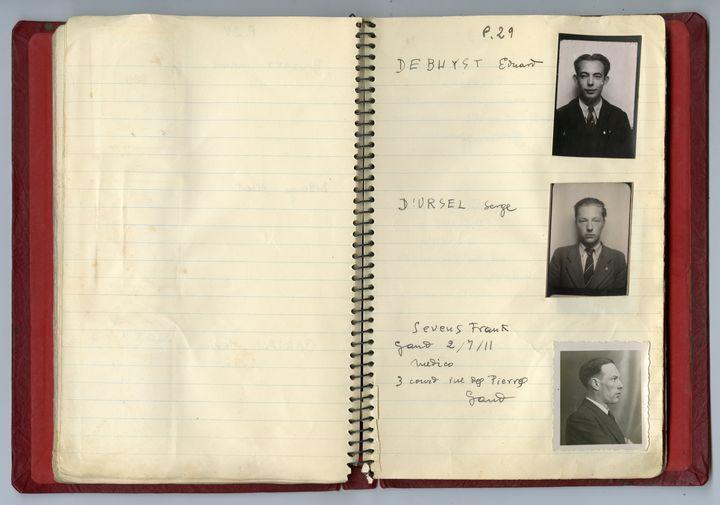 P.29
DEBHYST Eduard
D'URSEL Serge
Sevens Frank
Gand 2/7/11
Medico
3 court rue des Pierres
Gand